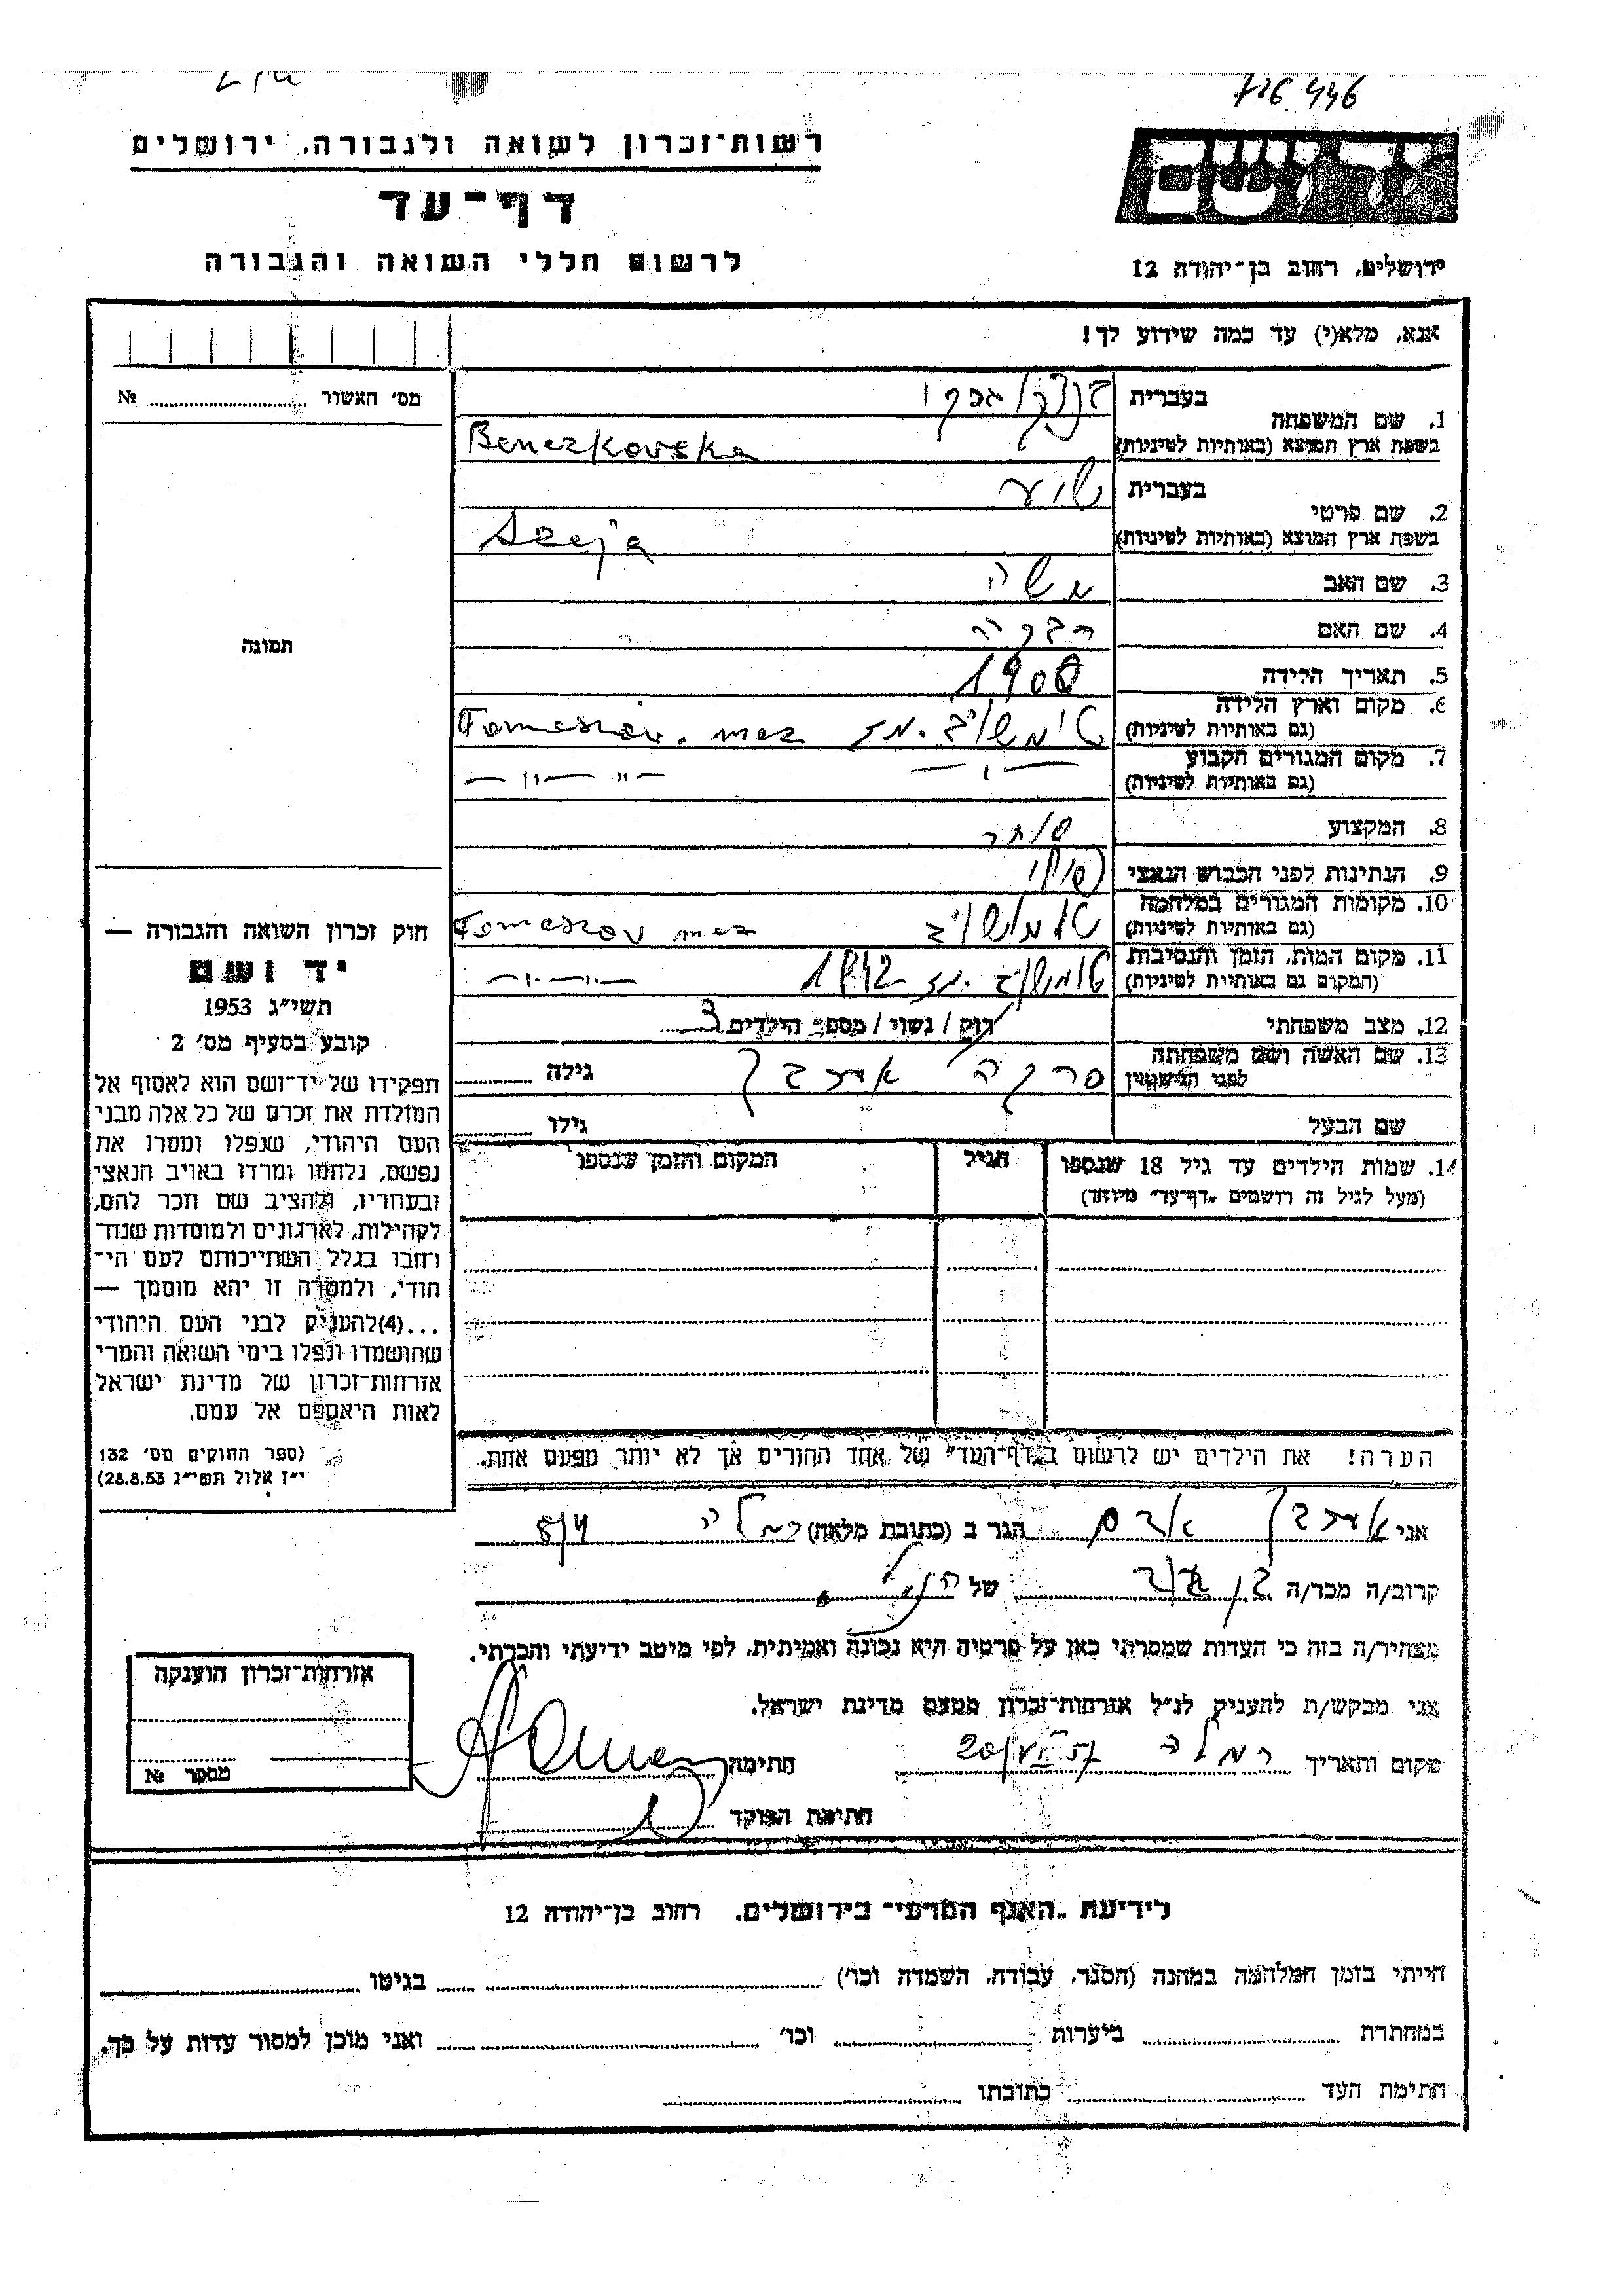 446
רשות־זכרון לשואה ולגבורה, ירושלים
דף־עד
לרשום חללי השואה והגבורה
יד ושם
ירושלים, רחוב בן־יהודה 12
אנא, מלא(י) עד כמה שידוע לך!
מס׳ האשור № 
1. שם המשפחה
בעברית
בשפת ארץ המוצא (באותיות לטיניות) Benczkovska
2. שם פרטי
בעברית
בשפת ארץ המוצא (באותיות לטיניות) Szeja
3. שם האב משה
4. שם האם רבקה
5. תאריך הלידה 1900
6. מקום וארץ הלידה
(גם באותיות לטיניות) טומשוב. מז Tomaszów. maz
7. מקום המגורים הקבוע
(גם באותיות לטיניות) — " — — " — " —
8. המקצוע סוחר
9. הנתינות לפני הכבוש הנאצי
10. מקומות המגורים במלחמה
(גם באותיות לטיניות) טומשוב Tomaszov maz
11. מקום המות, הזמן והנסיבות
(המקום גם באותיות לטיניות) טומשוב. מז 1942 — " — " —
12. מצב משפחתי רוק / נשוי / מספר הילדים 3
13. שם האשה ושם משפחתה
לפני הנישואין גילה
שם הבעל גילו
14. שמות הילדים עד גיל 18 שנספו
(מעל לגיל זה רושמים „דף־עד״ מיוחד)
הגיל
המקום והזמן שנספו
הערה! את הילדים יש לרשום ב„דף־העד״ של אחד ההורים אך לא יותר מפעם אחת.
תמונה
חוק זכרון השואה והגבורה —
יד ושם
תשי״ג 1953
קובע בסעיף מס׳ 2
תפקידו של יד־ושם הוא לאסוף אל
המולדת את זכרם של כל אלה מבני
העם היהודי, שנפלו ומסרו את
נפשם, נלחמו ומרדו באויב הנאצי
ובעוזריו, ולהציב שם וזכר להם,
לקהילות, לארגונים ולמוסדות שנח־
רבו בגלל השתייכותם לעם הי־
הודי, ולמטרה זו יהא מוסמך —
...(4)להעניק לבני העם היהודי
שהושמדו ונפלו בימי השואה והמרי
אזרחות־זכרון של מדינת ישראל
לאות היאספם אל עמם.
(ספר החוקים מס׳ 132
י״ז אלול תשי״ג 28.8.53)
אני הגר ב (כתובת מלאה) רמלה
קרוב/ה מכר/ה של הנ״ל
מצהיר/ה בזה כי העדות שמסרתי כאן על פרטיה היא נכונה ואמיתית, לפי מיטב ידיעתי והכרתי.
אני מבקש/ת להעניק לנ״ל אזרחות־זכרון מטעם מדינת ישראל.
מקום ותאריך רמלה חתימה
חתימת הפוקד
אזרחות־זכרון הוענקה
מספר №
לידיעת „האגף המדעי״ בירושלים, רחוב בן־יהודה 12
הייתי בזמן המלחמה במחנה (הסגר, עבודה, השמדה וכו׳) בגיטו
במחתרת ביערות וכו׳ ואני מוכן למסור עדות על כך.
חתימת העד כתובתו